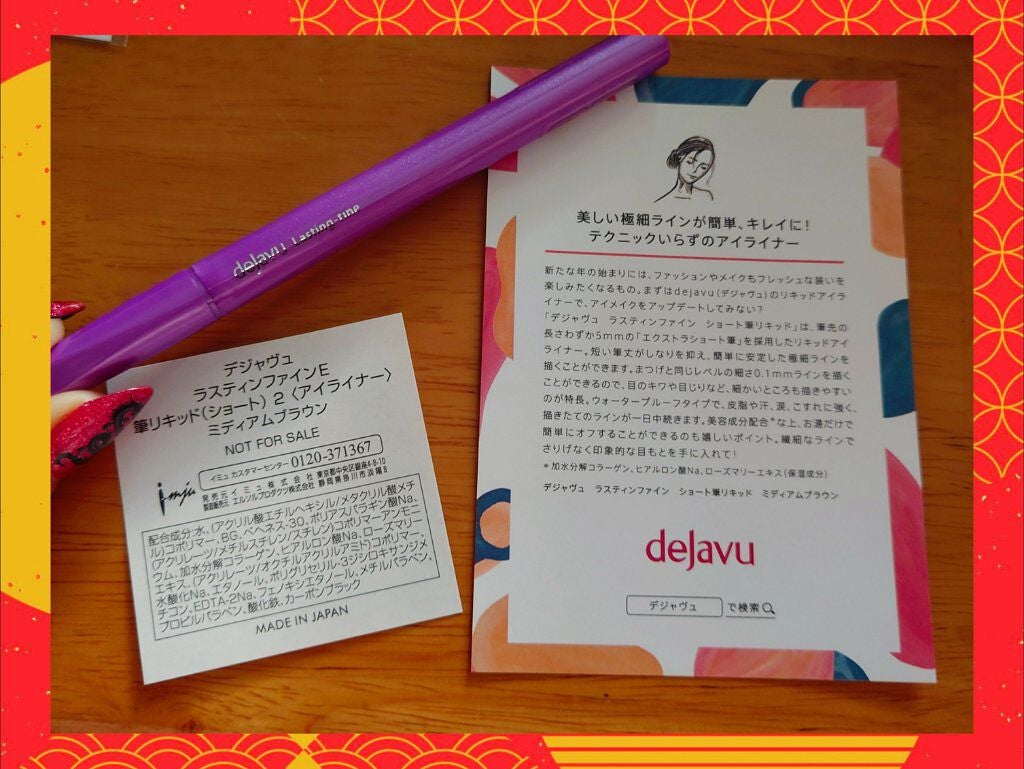 dejavu Lasting-fine
美しい極細ラインが簡単、キレイに!
テクニックいらずのアイライナー
新たな年の始まりには、ファッションやメイクもフレッシュな装いを
楽しみたくなるもの。まずはdejavu(デジャヴュ)のリキッドアイラ
イナーで、アイメイクをアップデートしてみない?
「デジャヴュ ラスティンファイン ショート筆リキッド」は、筆先の
長さわずか5mmの「エクストラショート筆」を採用したリキッドアイ
ライナー。短い筆丈がしなりを抑え、簡単に安定した極細ラインを
描くことができます。まつげと同じレベルの細さ0.1mmラインを描く
ことができるので、目のキワや目じりなど、細かいところも描きやすい
のが特長。ウォータープルーフタイプで、皮脂や汗、涙、こすれに強く、
描きたてのラインが一日中続きます。美容成分配合*な上、お湯だけで
簡単にオフすることができるのも嬉しいポイント。繊細なラインで
さりげなく印象的な目もとを手に入れて!
*加水分解コラーゲン、ヒアルロン酸Na、ローズマリーエキス(保湿成分)
デジャヴュ ラスティンファイン ショート筆リキッド ミディアムブラウン
dejavu
デジャヴュ で検索
デジャヴュ
ラスティンファインE
筆リキッド(ショート) 2 〈アイライナー〉
ミディアムブラウン
NOT FOR SALE
イミュ カスタマーセンター 0120-371367
imju
発売元 イミュ株式会社 東京都中央区銀座4-8-10
製造販売元 エルソルプロダクツ株式会社 静岡県掛川市浜曜8
配合成分:水、(アクリル酸エチルヘキシル/メタクリル酸メチ
ル)コポリマー、BG、ベヘネス-30、ポリアスパラギン酸Na、
(アクリレーツ/メチルスチレン/スチレン)コポリマーアンモニ
ウム、加水分解コラーゲン、ヒアルロン酸Na、ローズマリー
エキス、(アクリレーツ/オクチルアクリルアミド)コポリマー、
水酸化Na、エタノール、ポリグリセリル-3ジシロキサンジメ
チコン、EDTA-2Na、フェノキシエタノール、メチルパラベン、
プロピルパラベン、酸化鉄、カーボンブラック
MADE IN JAPAN